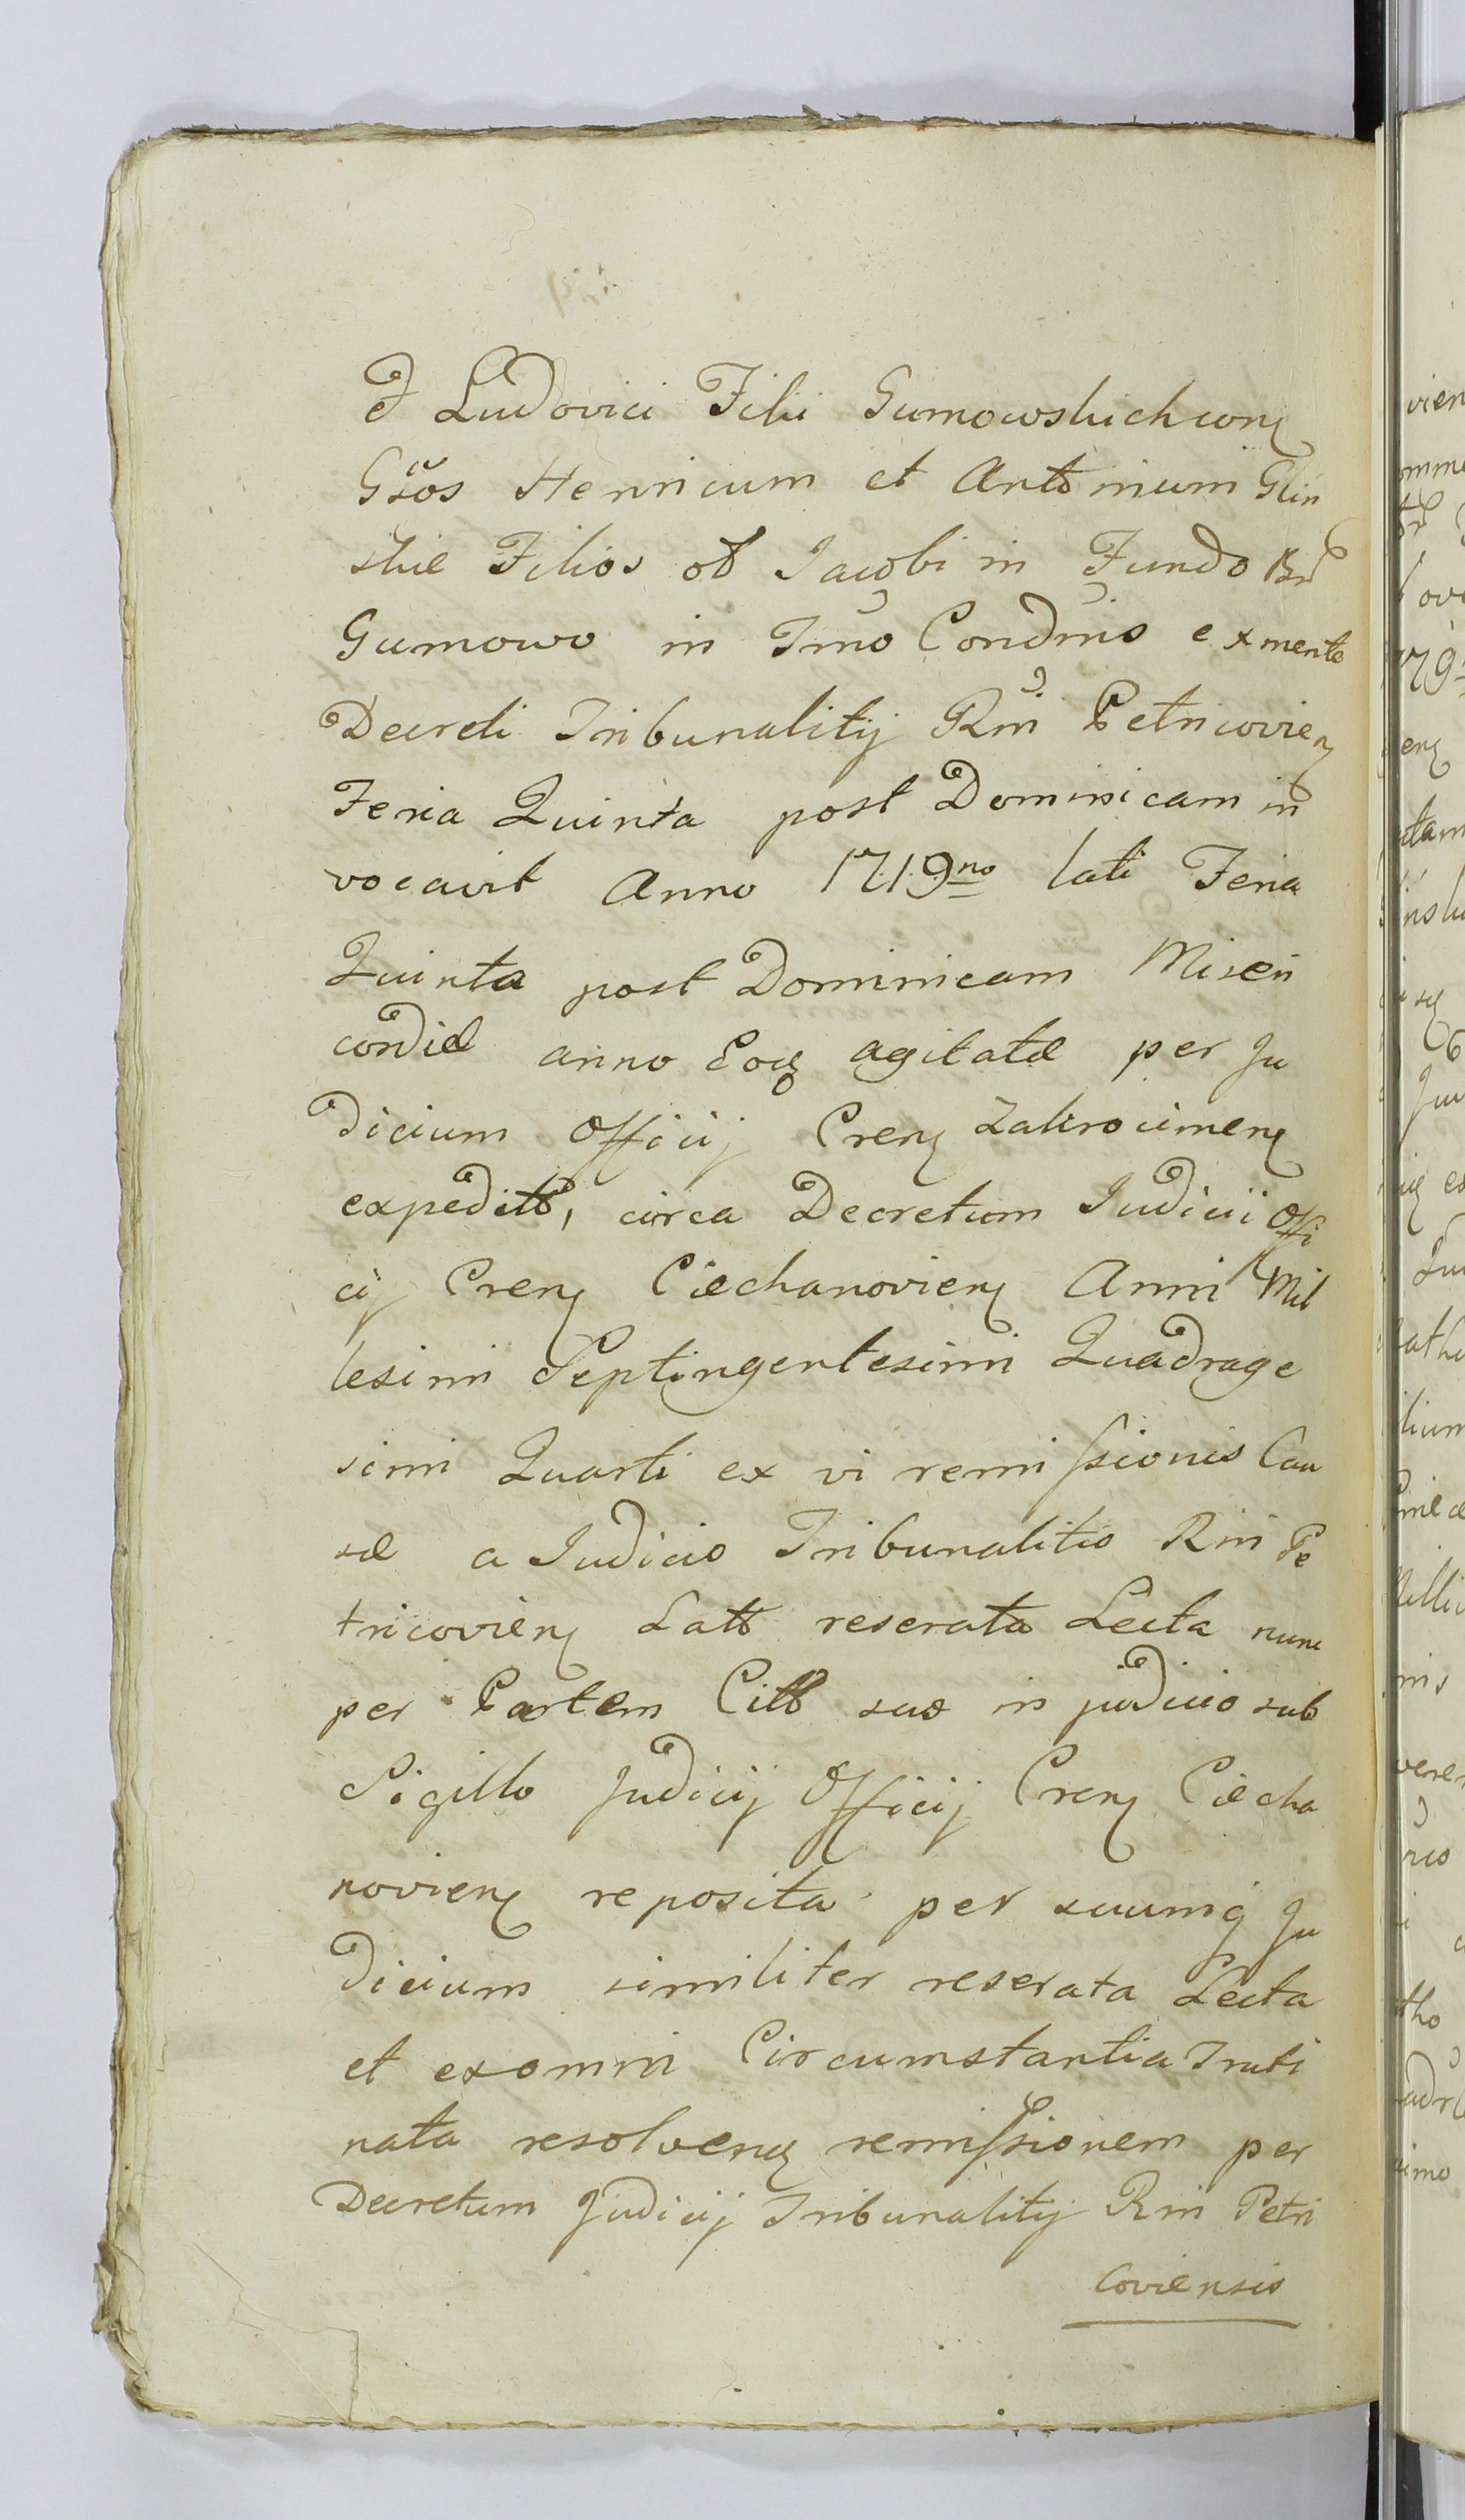 Ludovici Filii Gumowskich corq
Gsos Henricum et Antonium Glin
skie Filios ol Jacobi in Fundo Bn̄
Gumowo in Tmo Condnis ex mente
Decreti Tribunalitij Rni Petricovienȝ
Feria Quinta post Dominicam in
vocavit Anno 1719no lati Feria
Quinta post Dominicam Miseri
cordiæ anno Eoq agitatæ per Ju
dicium Officij Crenȝ Zakrocimenȝ
expeditt, circa Decretum Judicii Offi
cij Crenȝ Ciechanovienȝ Anni Mil
lesimi Septingentesimi Quadrage
simi Quarti ex vi remissionis Cau
sæ a Judicio Tribunalitio Rni Pe
tricovienȝ Latt reserata Lecta nunc
per Partem Citt suo in judicio sub
Sigillo Judicij Officij Crenȝ Ciecha
novienȝ reposita per suumq Ju
dicium similiter reserata Lecta
et ex omni Circumstantia Truti
nata resolvenȝ remissionem per
Decretum Judicij Tribunalitij Rni Petri
coviensis